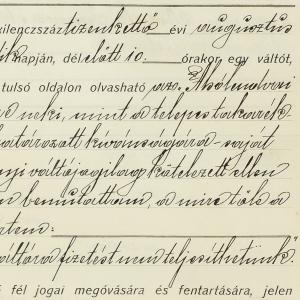 kilencszáz tizenkettő évi augusztus
ik napján, dél előtt 10. órakor egy váltót,
tulsó oldalon olvasható az Alsólendvai
ve neki, mint a telepes takarék
határozott kivánságára – saját
nyi váltójogilag kötelezett ellen
n bemutattam, a mire tőle a
tem:
váltóra fizetést nem teljesíthetünk"
s fél jogai megóvására és fentartására, jelen